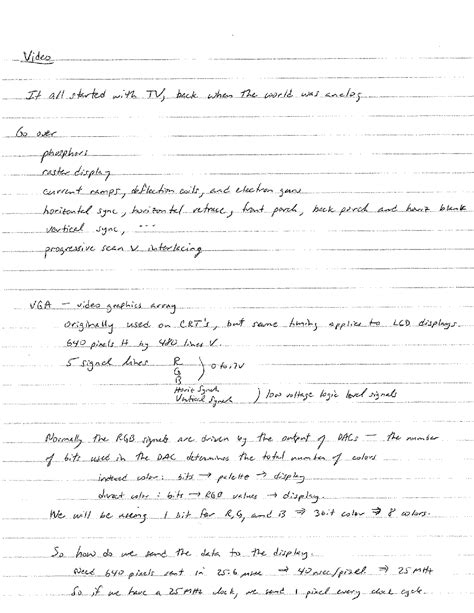 Video
It all started with TV, back when the world was analog
Go over
phosphors
raster display
current ramps, deflection coils, and electron guns
horizontal sync, horizontal retrace, front porch, back porch and horiz blank
vertical sync, ...
progressive scan v. interlacing
VGA — video graphics array
originally used on CRT's, but same timing applies to LCD displays.
640 pixels H by 480 lines V.
5 signal lines R
G } 0 to .7V
B
Horiz Synch
Vertical Synch } low voltage logic level signals
Normally the RGB signals are driven by the output of DACs — the number
of bits used in the DAC determines the total number of colors
indexed color: bits → palette → display
direct color: bits → RGB values → display.
We will be using 1 bit for R, G, and B ⇒ 3 bit color ⇒ 8 colors.
So how do we send the data to the display.
Need 640 pixels sent in 25.6 μsec ⇒ 40 nsec/pixel ⇒ 25 MHz
So if we have a 25 MHz clock, we send 1 pixel every clock cycle.